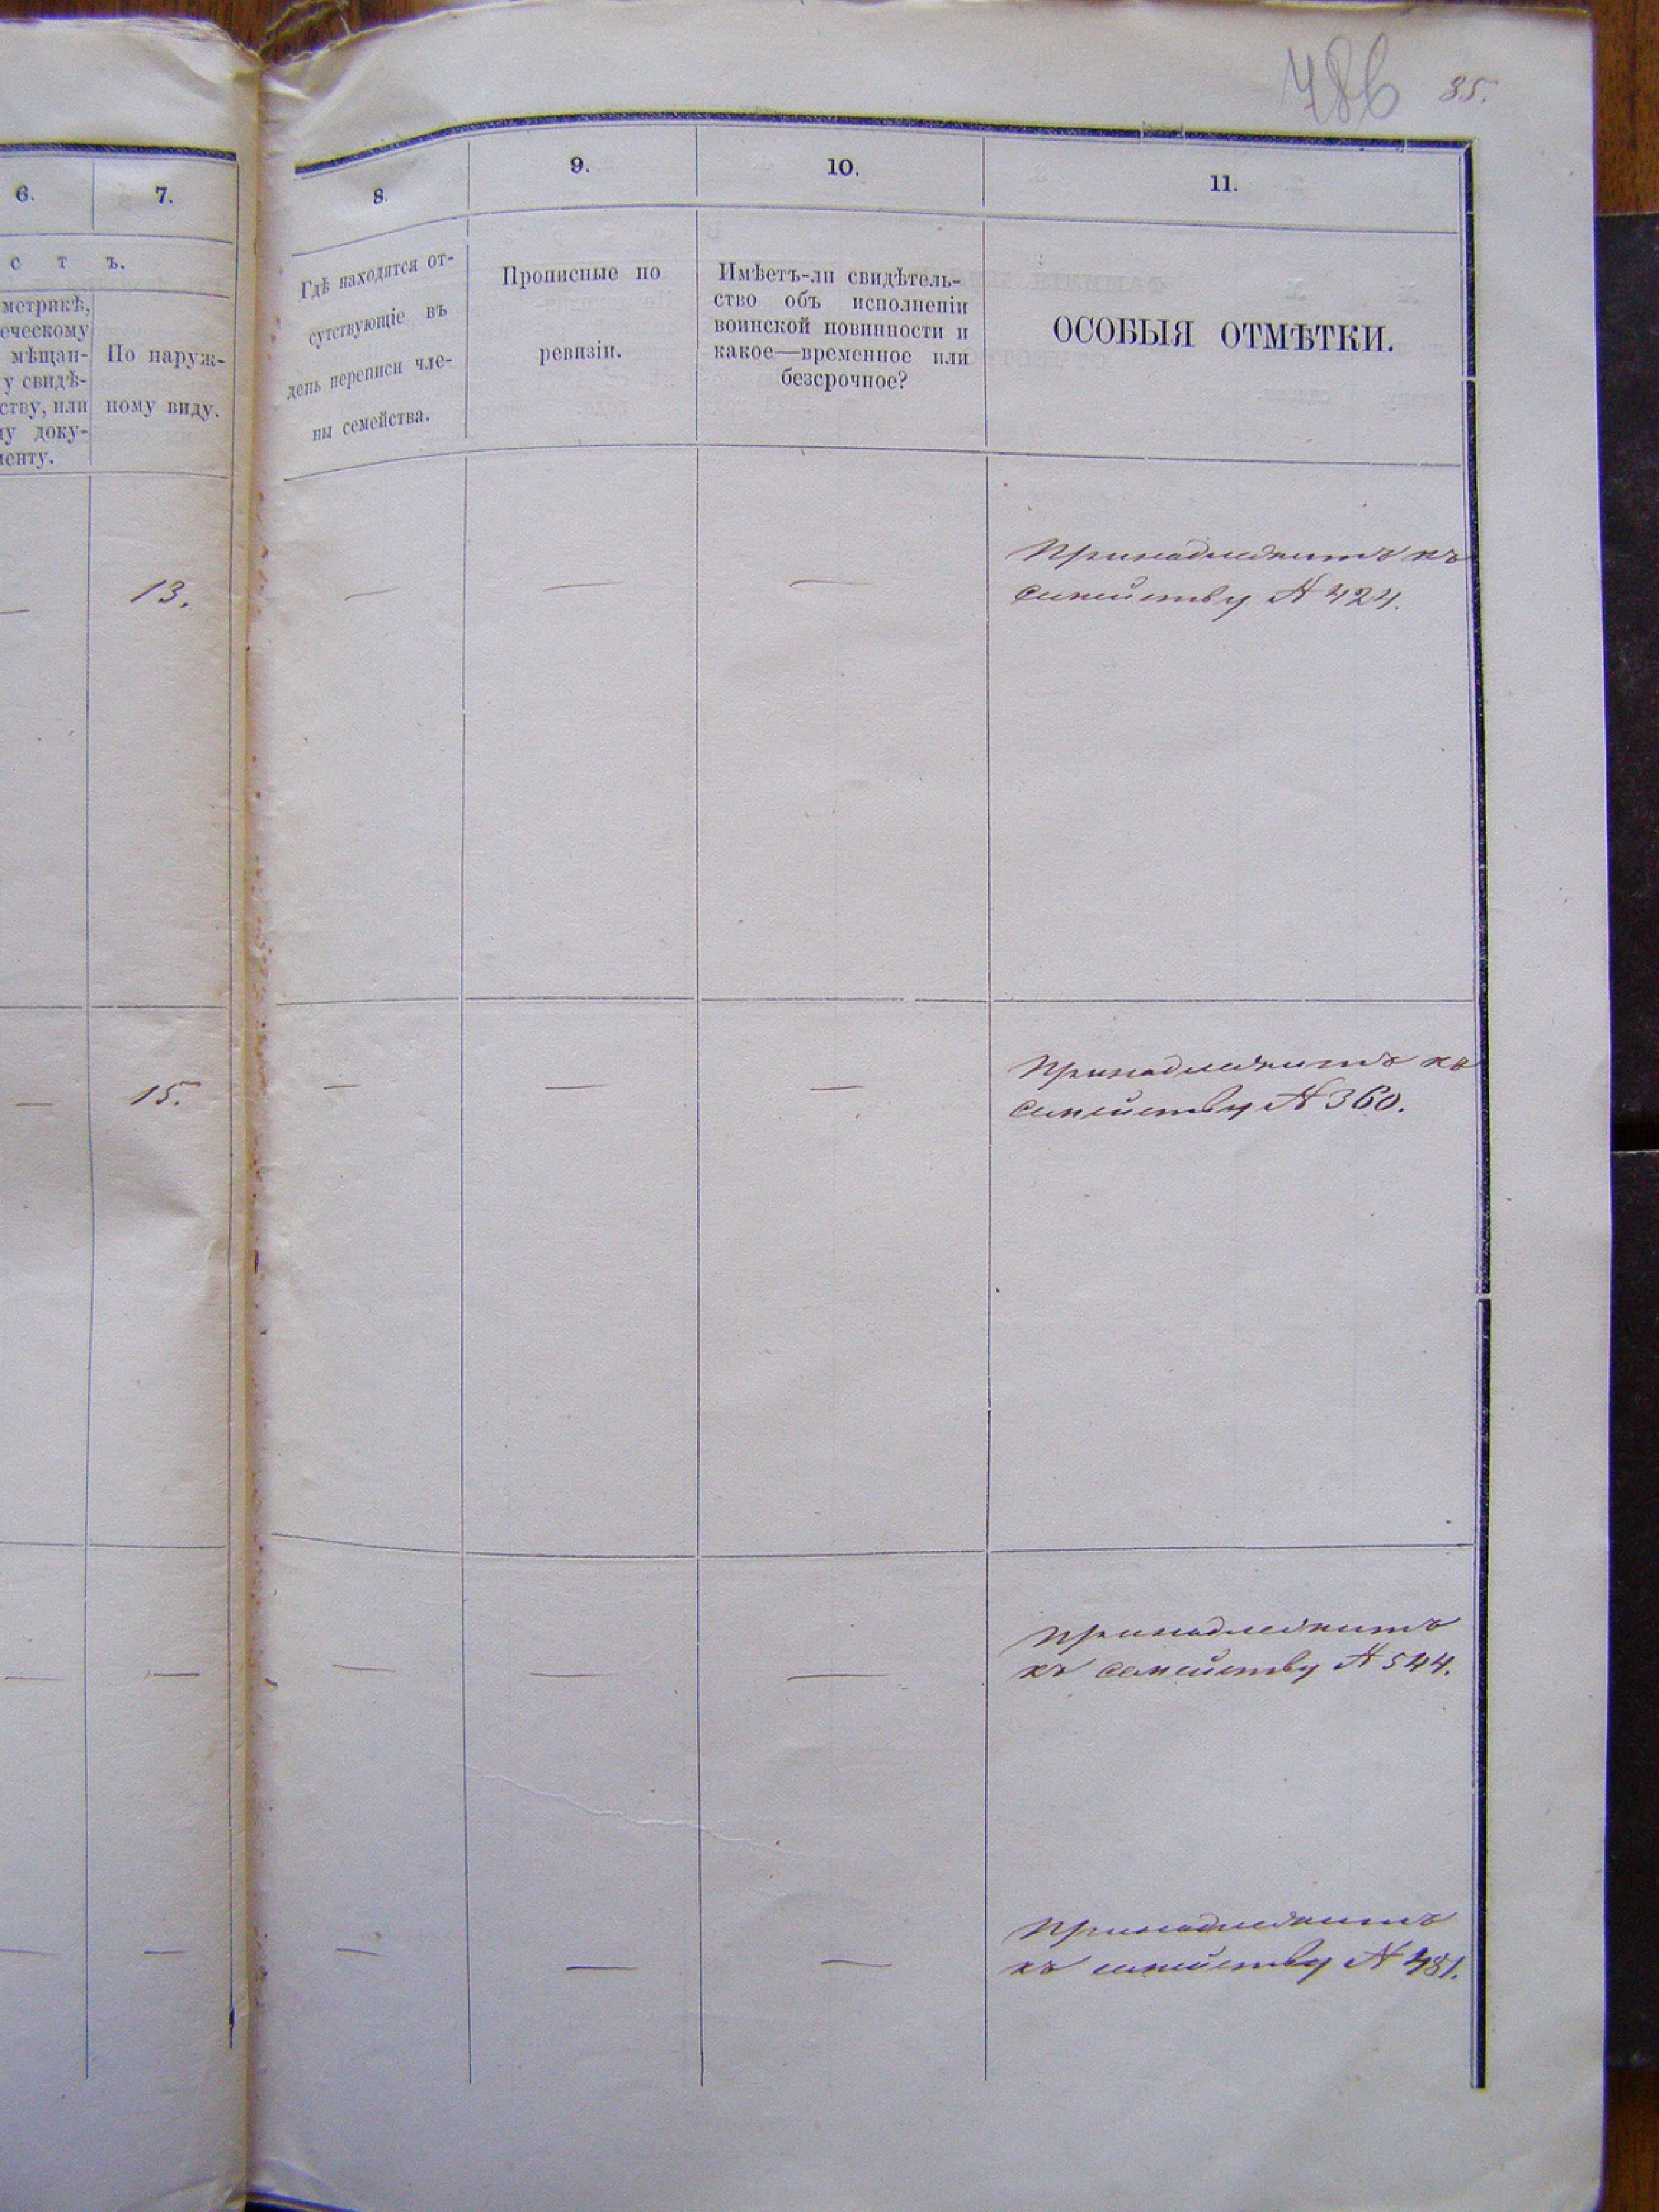 486 35.
6. 7. 8. 9. 10. 11.
с т ъ.
метрикѣ,
еческому
мѣщан-
у свидѣ-
ству, или
му доку-
менту.
По наруж-
ному виду.
Гдѣ находятся от-
сутствующіе въ
день переписи чле-
ны семейства.
Прописные по
ревизіи.
Имѣетъ-ли свидѣтель-
ство объ исполненіи
воинской повинности и
какое—временное или
безсрочное?
ОСОБЫЯ ОТМѢТКИ.
— 13. — — — Принадлежитъ къ
семейству № 424.
— 15. — — — Принадлежитъ къ
семейству № 360.
— — — — — Принадлежитъ
къ семейству № 544.
— — — — — Принадлежитъ
къ семейству № 481.